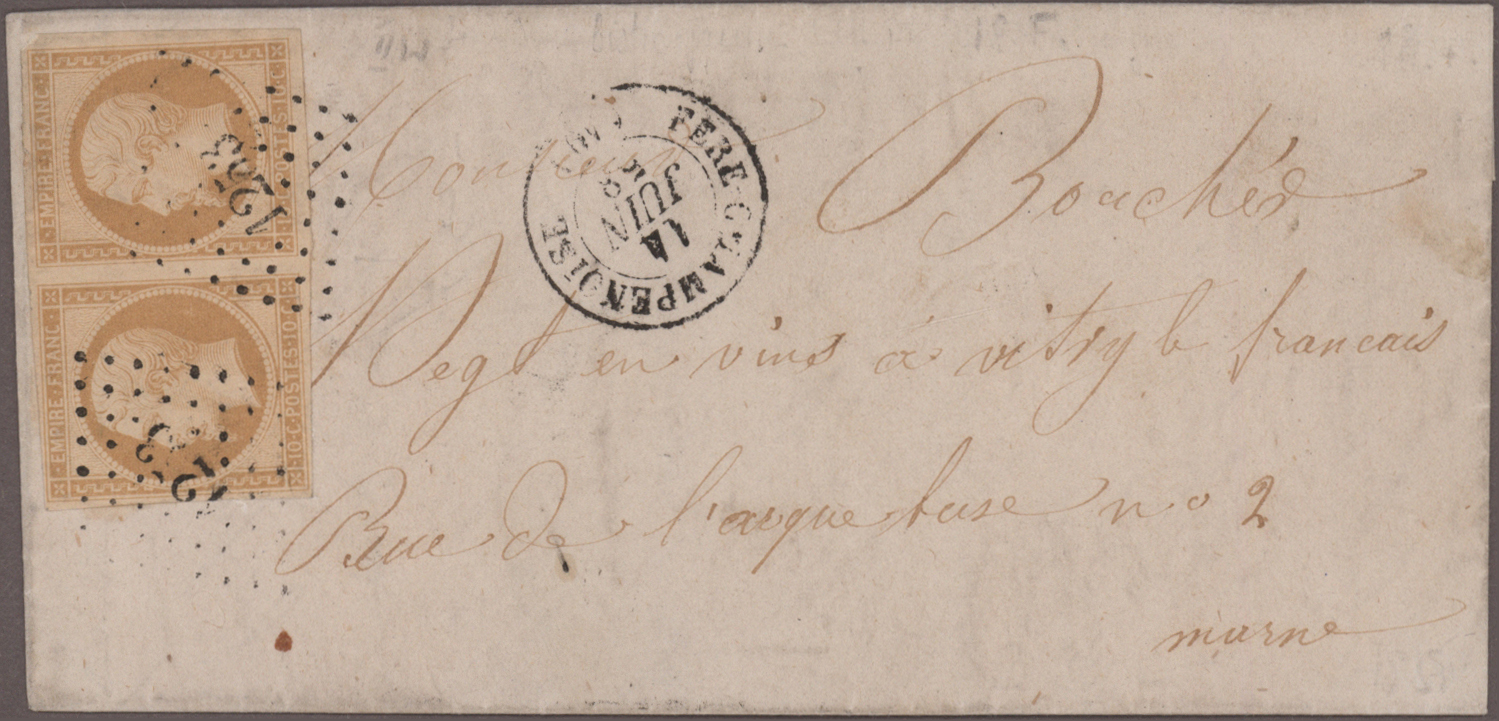 EMPIRE·FRANC·
10·C·POSTES·10·C
EMPIRE·FRANC·
10·C·POSTES·10·C
1203
1203
FERE-CHAMPENOISE
14
JUIN
Monsieur Bouchéz
Negt en vins à vitry le francais
Rue de l'arquebuse no 2
marne